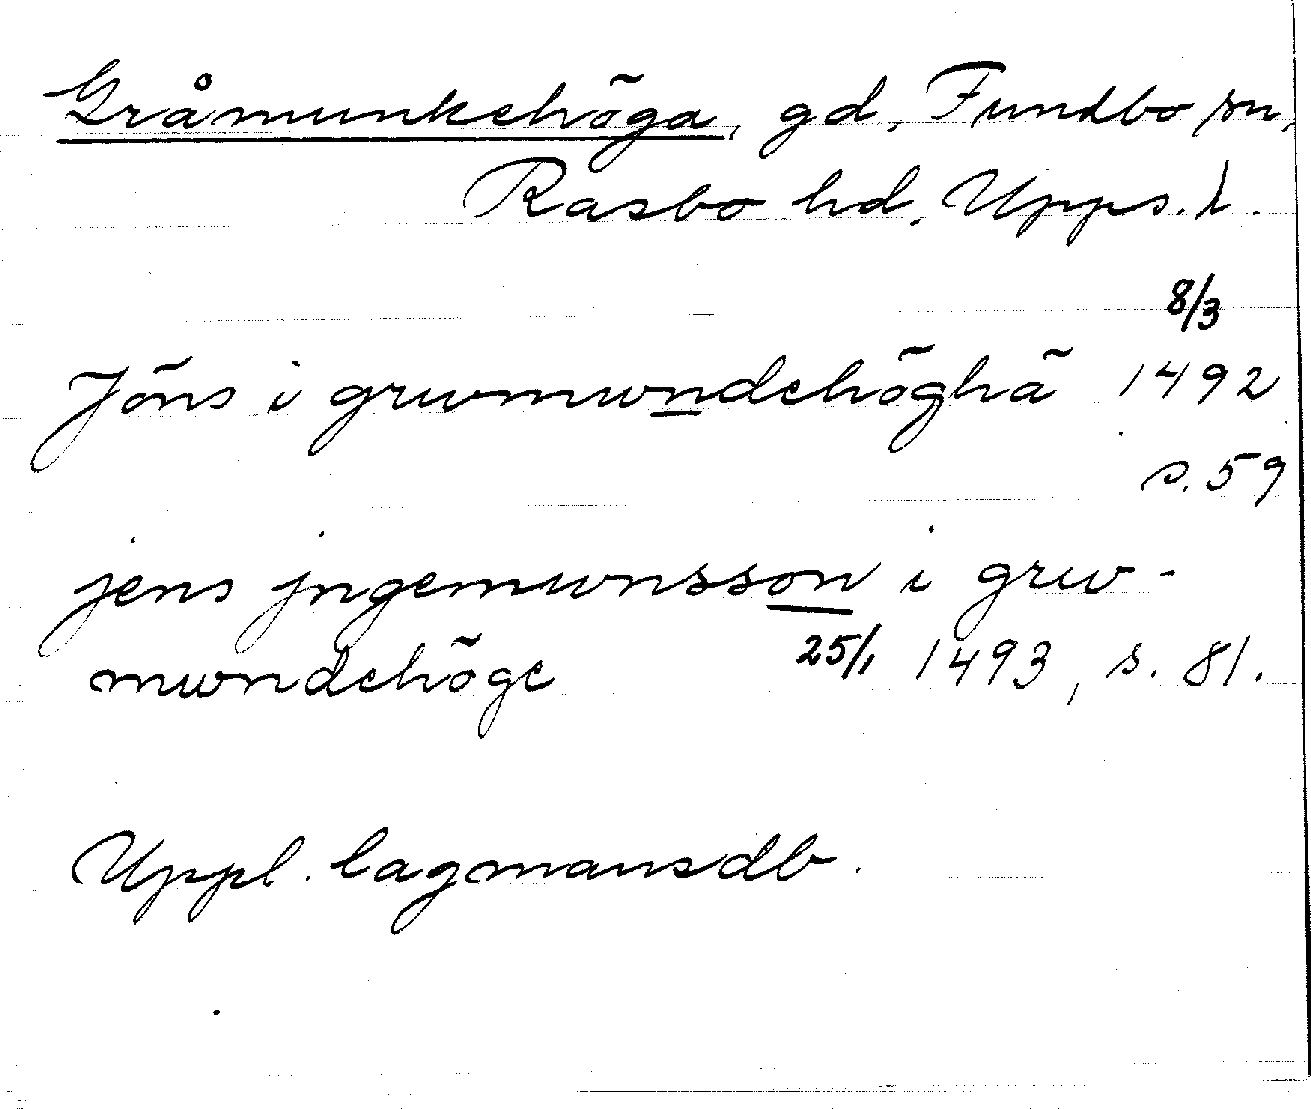 Gråmunkehöga, gd, Funbo sn,
Rasbo hd, Upps. l.
8/3
Jöns i grwmwndehöghä 1492
s. 59
jens jngemwnsson i grw-
mwndehöge 25/1 1493, s. 81.
Uppl. lagmansdb.